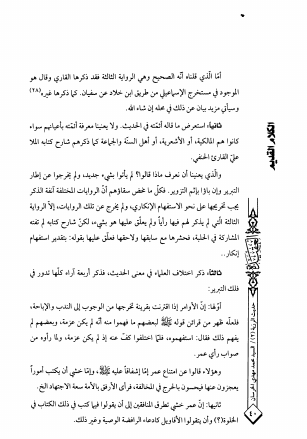 أمّا الّذي قلناه أنّه الصحيح وهي الرواية الثالثة فقد ذكرها القاري وقال هو
الموجود في مستخرج الإسماعيلي من طريق ابن خلاد عن سفيان. كما ذكرها غيره(٢٨)
وسيأتي مزيد بيان عن ذلك في محله إن شاء الله.
ثانياً: استعرض ما قاله أئمّته في الحديث. ولا يعنينا معرفة أئمّته بأعيانهم سواء
كانوا هم المالكية، أو الأشعرية، أو أهل السنّة والجماعة كما ذكرهم شارح كتابه الملا
عليّ القارئ الحنفي.
والّذي يعنينا أن نعرف ماذا قالوا؟ لم يأتوا بشيء جديد، ولم يخرجوا عن إطار
التبرير وإن باؤا بإثم التزوير. فكلّ ما محّض سقاؤهم أنّ الروايات المختلفة آنفة الذكر
يجب تخريجها على نحو الاستفهام الإنكاري، ولم يخرج عن تلك الروايات، إلاّ الرواية
الثالثة الّتي لم يذكر لهم فيها رأياً ولم يعلّق عليها هو بشيء، لكنّ شارح كتابه لم تفته
المشاركة في الحلبة، فحشرها مع سابقها ولاحقها فعلّق عليها بقوله: بتقدير استفهام
إنكار..
ثالثاً: ذكر اختلاف العلماء في معنى الحديث، فذكر أربعة آراء كلّها تدور في
ذلك التبرير:
أوّلها: إنّ الأوامر إذا اقترنت بقرينة تخرجها من الوجوب إلى الندب والإباحة،
فلعلّه ظهر من قرائن قوله ﷺ لبعضهم ما فهموا منه أنّه لم يكن عزمة، وبعضهم لم
يفهم ذلك فقال: استفهموه، فلمّا اختلفوا كفّ عنه إذ لم يكن عزمة، ولما رأوه من
صواب رأي عمر.
وهؤلاء قالوا عن امتناع عمر إمّا إشفاقاً عليه ﷺ، وإمّا خشي أن يكتب أموراً
يعجزون عنها فيحصون بالحرج في المخالفة، فرأى الأرفق بالأمة سعة الاجتهاد الخ.
ثانيها: إنّ عمر خشي تطرق المنافقين إلى أن يقولوا فيما كتب في ذلك الكتاب في
الخلوة(؟) وأن يتقوّلوا الأقاويل كادعاء الرافضة الوصية وغير ذلك.
الكلام القديم
حديث الرزية / ١٢ / السيد محمد مهدي الخرسان
٤٠